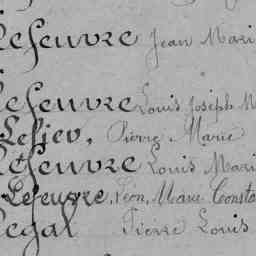 Lefeuvre Jean Mari
Lefeuvre Louis Joseph M
Lefiev, Pierre Marie
Lefeuvre Louis Mari
Lefeuvre, Léon, Marie Consta
Legal Pierre Louis